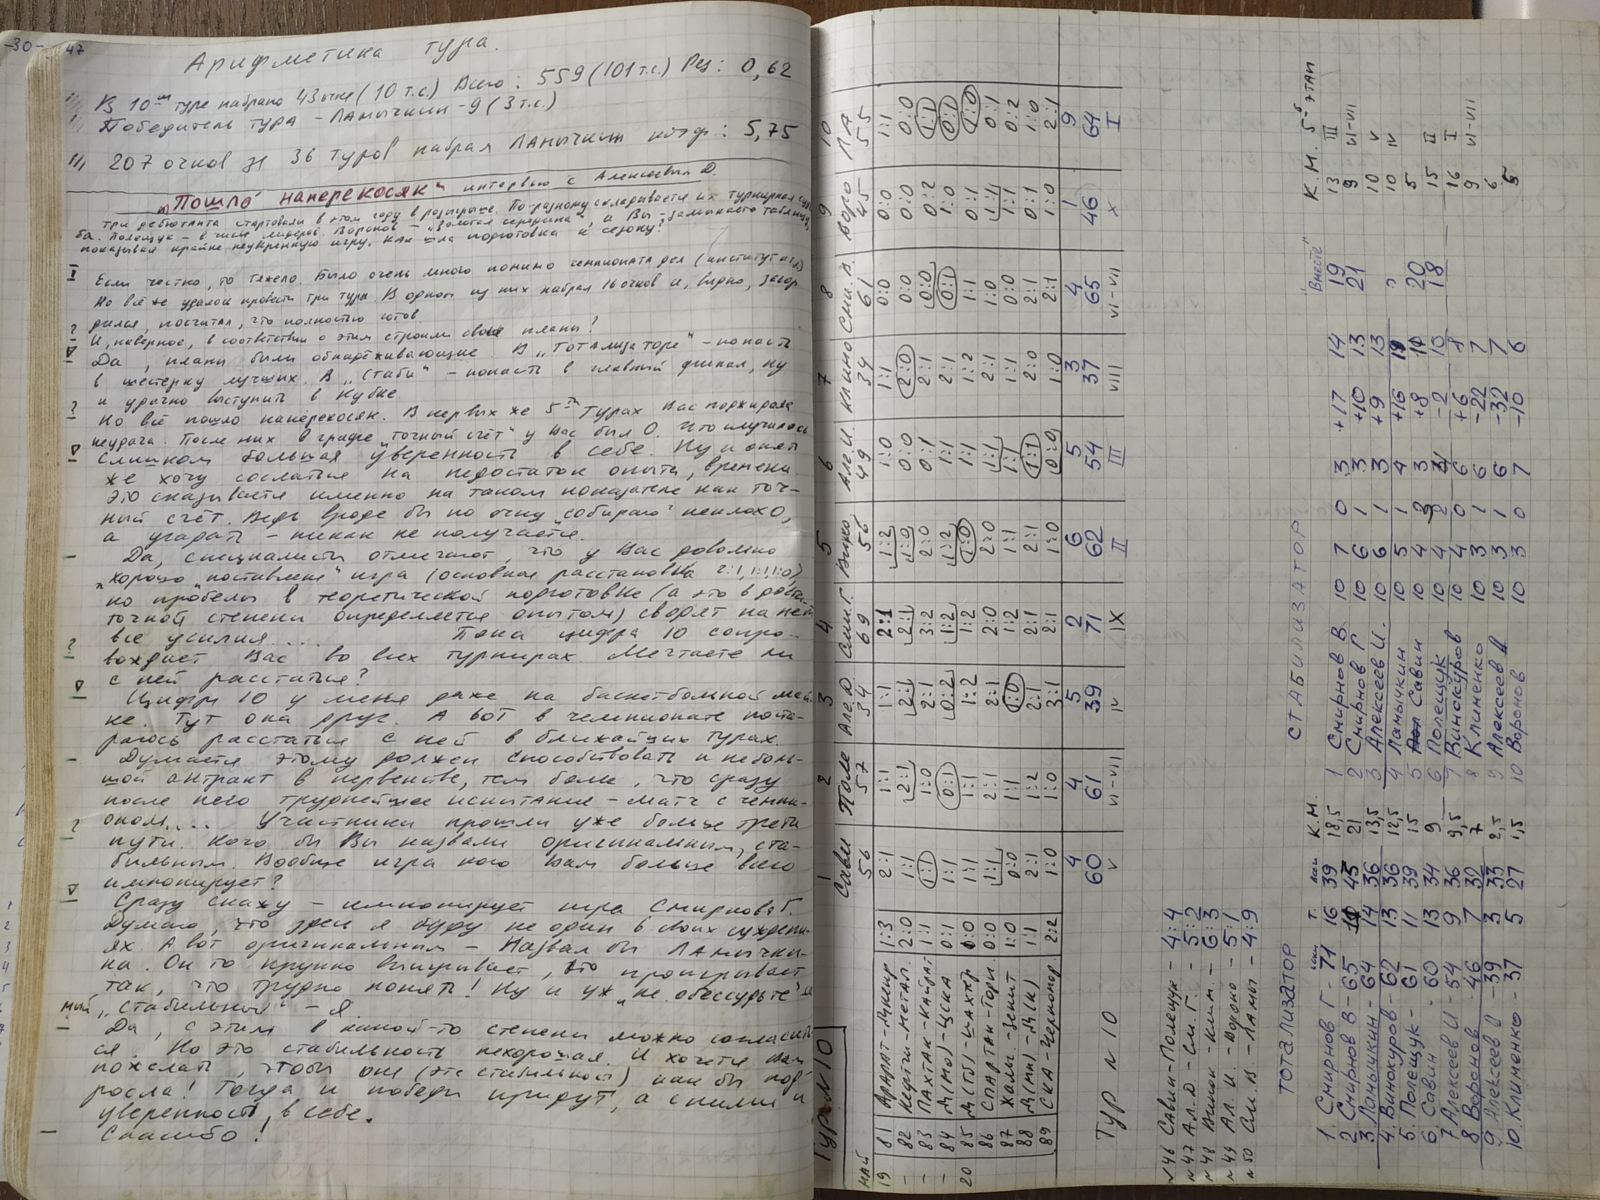 -30-
47
Арифметика тура.
В 10-м туре набрано 43 очка (10 т.с.) Всего: 559 (101 т.с.) Рез: 0,62
Победитель тура - Ламычкин - 9 (3 т.с.)
207 очков за 36 туров набрал Ламычкин коэф: 5,75
"Пошло наперекосяк" интервью с Алексеевым Д.
Три дебютанта стартовали в этом году в розыгрыше. По-разному складывается их турнирная судьба.
Полещук - в числе лидеров. Воронов - "золотая середина", а Вы - замыкаете таблицу,
показывая крайне неуверенную игру. Как шла подготовка к сезону?
Если честно, то тяжело. Было очень много помимо чемпионата дел (институт и т.д.)
Но всё же удалось провести три тура. В одном из них набрал 16 очков и, видно, загор
дился, посчитал, что полностью готов.
И, наверное, в соответствии с этим строили свои планы?
Да, планы были обнадёживающие. В "Тотализаторе" - попасть
в шестерку лучших. В "Стаби" - попасть в главный финал, ну
и удачно выступить в Кубке.
Но всё пошло наперекосяк. В первых же 5-ти турах Вас поджидала
неудача. После них в графе "точный счёт" у Вас был 0. Что случилось
Слишком большая уверенность в себе. Ну и опять
же хочу сослаться на недостаток опыта, времени.
Это сказывается именно на таком показателе как точ-
ный счёт. Ведь вроде бы по очку "собираю" неплохо,
а угадать - никак не получается.
Да, специалисты отмечают, что у Вас довольно
хорошо "поставлена" игра (основная расстановка 2:1, 1:1, 1:0)
но пробелы в теоретической подготовке (а это в доста
точной степени определяется опытом) сводят на нет
все усилия.... Пока цифра 10 сопро-
вождает Вас во всех турнирах. Мечтаете ли
с ней расстаться?
Цифра 10 у меня даже на баскетбольной май
ке. Тут она друг. А вот в чемпионате поста-
раюсь расстаться с ней в ближайших турах.
Думается этому должен способствовать и неболь-
шой антракт в первенстве, тем более, что сразу
после него труднейшее испытание - матч с чемпи-
оном.... Участники прошли уже больше трети
пути. Кого бы Вы назвали оригинальным, ста-
бильным. Вообще игра кого Вам больше всего
импонирует?
Сразу скажу - импонирует игра Смирнова Г.
Думаю, что здесь я буду не один в своих суждени-
ях. А вот оригинальным - назвал бы Ламычки-
на. Он то крупно выигрывает, то проигрывает
так, что трудно понять! Ну и уж "не обессудьте" са
мый "стабильный" - я.
Да, с этим в какой-то степени можно согласить
ся. Но это стабильность нехорошая. И хочется Вам
пожелать, чтобы она (эта стабильность) как бы под
росла! Тогда и победы придут, а с ними и
уверенность в себе.
Спасибо!
Тур №10
1 2 3 4 5 6 7 8 9 10
Сави Поле Але.Д Смир.Г Вино. Але.И. Климе Сми.В. Воро ЛА
май 56 57 34 69 56 49 34 61 45 55
19 81 Арарат-Днепр 1:3 2:1 1:1 1:1 2:1 1:2 1:0 1:1 0:0 0:0 1:1
- 82 Кайрат-Метал. 2:0 1:1 2:1 2:1 2:1 1:0 0:0 2:0 0:0 0:0 0:0
- 83 Пахтак-Кайрат 1:1 1:1 1:0 2:1 3:2 2:0 0:1 2:1 0:0 0:2 1:1
- 84 Д(Мо)-ЦСКА 0:1 1:1 0:1 0:2 1:2 1:2 1:1 2:1 0:1 1:0 0:1
20 85 Д(Тб)-Шахтер 0:0 1:1 1:1 1:2 1:2 1:0 1:1 1:2 1:1 0:1 1:0
86 Спартак-Торп. 0:0 1:1 2:1 2:1 2:0 2:0 1:1 2:1 1:0 1:1 0:1
87 Жальг.-Зенит 1:0 0:0 1:1 1:0 1:2 1:1 1:1 1:1 0:0 1:1 0:2
88 Д(Мн)-Д(К) 1:1 2:1 1:2 2:1 2:1 2:1 1:1 2:0 2:1 0:1 1:0
89 СКА-Черномор. 2:2 1:0 1:0 3:1 2:1 1:0 0:0 1:0 2:1 1:0 2:1
4 4 5 2 6 5 3 4 1 9
Тур №10 60 61 39 71 62 54 37 65 46 64
V VI-VII IV IX II III VIII VI-VII X I
№46 Савин-Полещук - 4:4
№47 Ал.Д-См.Г. - 5:2
№48 Винок-Клим. - 6:3
№49 Ал.И-Вороно - 5:1
№50 См.В-Ламы - 4:9
ТОТАЛИЗАТОР
т. К.М.
1. Смирнов Г - 71 16 39 18,5
2 Смирнов В - 65 45 21
3 Ламычкин - 64 14 36 13,5
4. Винокуров - 62 13 36 12,5
5. Полещук - 61 11 39 15
6 Савин - 60 13 34 9
7 Алексеев И - 54 9 36 9,5
8 Воронов - 46 7 32 7
9 Алексеев Д - 39 3 33 2,5
10. Клименко - 37 5 27 1,5
СТАБИЛИЗАТОР
"Вместе" К.М. 5-й этап
1 Смирнов В. 10 7 0 3 +17 14 19 13 III
2 Смирнов Г 10 6 1 3 +10 13 21 9 VI-VII
3 Алексеев И. 10 6 1 3 +9 13 10 V
4 Ламычкин 10 5 1 4 +16 ? 10 IV
5 Савин 10 4 3 +8 20 5
6 Полещук 10 4 2 -2 10 18 15 II
7 Винокуров 10 4 0 6 +6 8 16 I
8 Клименко 10 3 1 6 -22 7 9 VI-VII
9 Алексеев Д 10 3 1 6 -32 7 6
10 Воронов 10 3 0 7 -10 6